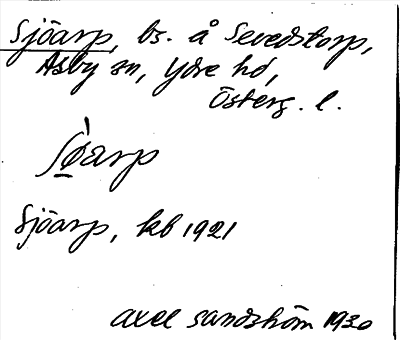 Sjöarp, bs. å Sevedstorp,
Asby sn, Ydre hd,
Österg. l.
Sjöarp, kb 1921
Axel Sandström 1930